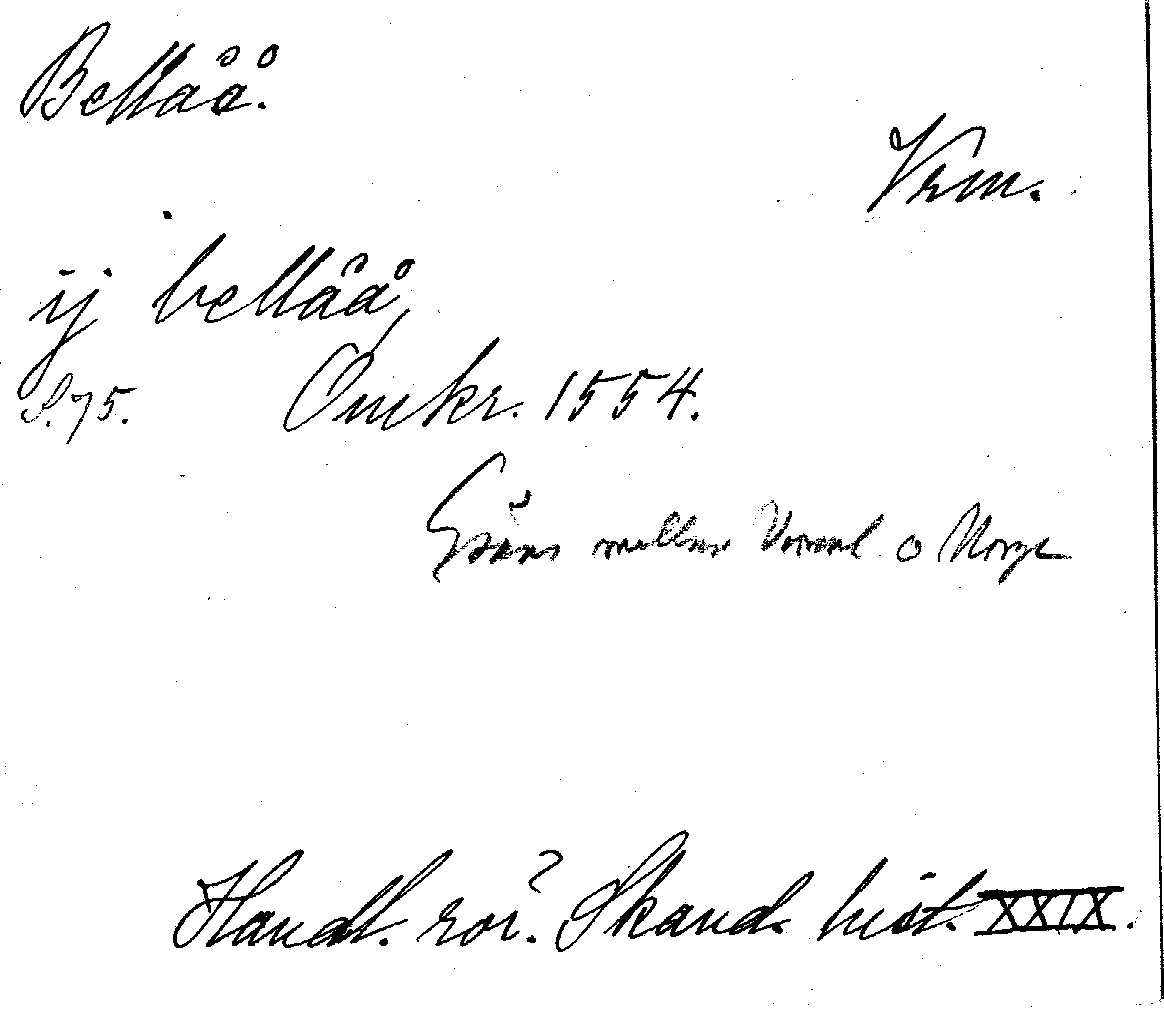 Bellåå.
Vrm.
ij bellåå,
S. 75. Omkr. 1554.
Gräns mellan Värml o Norge
Handl. rör. Skand. hist. XXIX.